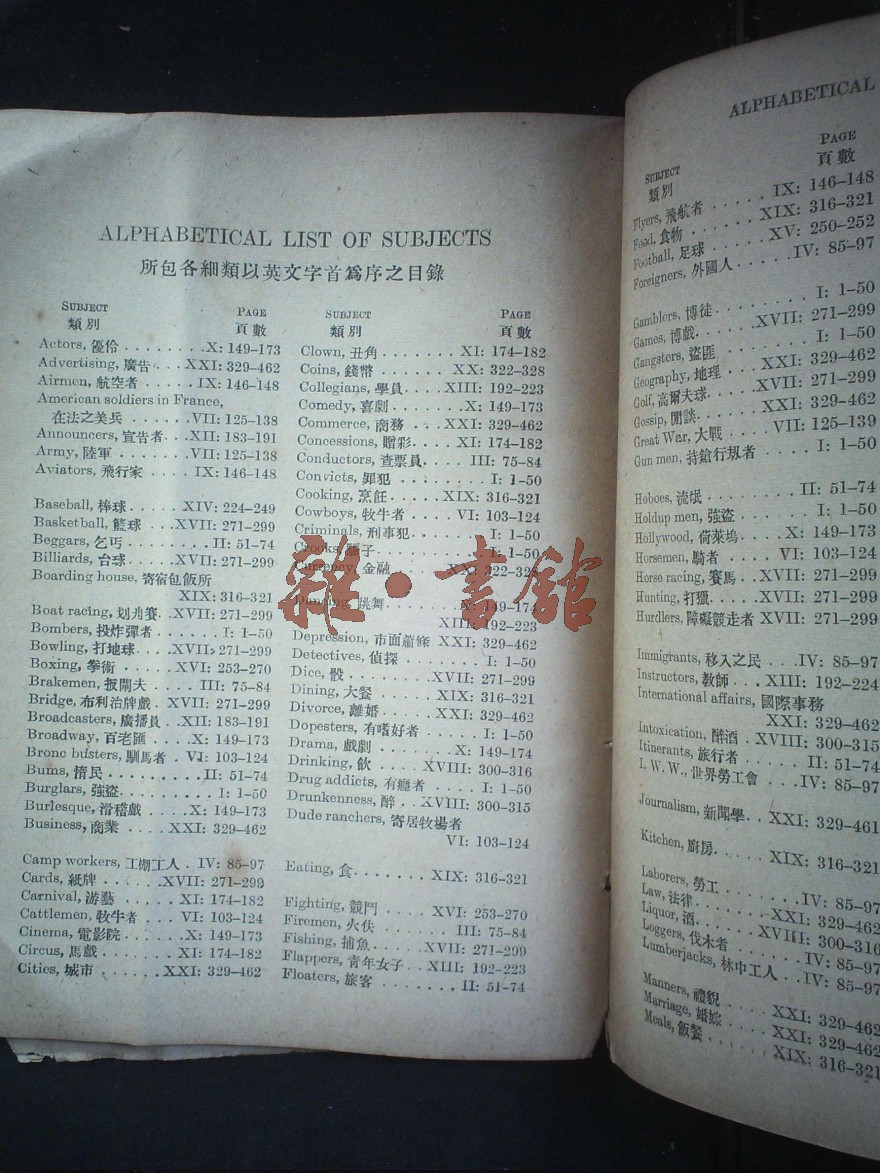 ALPHABETICAL LIST OF SUBJECTS
所包各細類以英文字首爲序之目錄
SUBJECT PAGE
類別 頁數
Actors, 優伶 ........ X: 149–173
Advertising, 廣告 ... XXI: 329–462
Airmen, 航空者 ...... IX: 146–148
American soldiers in France,
在法之美兵 ...... VII: 125–138
Announcers, 宣告者 ... XII: 183–191
Army, 陸軍 ........ VII: 125–138
Aviators, 飛行家 .... IX: 146–148
Baseball, 棒球 .... XIV: 224–249
Basketball, 籃球 ... XVII: 271–299
Beggars, 乞丐 ....... II: 51–74
Billiards, 台球 .... XVII: 271–299
Boarding house, 寄宿包飯所
XIX: 316–321
Boat racing, 划舟賽 .. XVII: 271–299
Bombers, 投炸彈者 ...... I: 1–50
Bowling, 打地球 .... XVII: 271–299
Boxing, 拳術 ..... XVI: 253–270
Brakemen, 扳閘夫 .... III: 75–84
Bridge, 布利治牌戲 . XVII: 271–299
Broadcasters, 廣播員 .. XII: 183–191
Broadway, 百老匯 .... X: 149–173
Bronc busters, 馴馬者 . VI: 103–124
Bums, 惰民 .......... II: 51–74
Burglars, 強盜 ........ I: 1–50
Burlesque, 滑稽戲 .... X: 149–173
Business, 商業 .... XXI: 329–462
Camp workers, 工棚工人 . IV: 85–97
Cards, 紙牌 ...... XVII: 271–299
Carnival, 游藝 ...... XI: 174–182
Cattlemen, 牧牛者 ... VI: 103–124
Cinema, 電影院 ...... X: 149–173
Circus, 馬戲 ....... XI: 174–182
Cities, 城市 ...... XXI: 329–462
SUBJECT PAGE
類別 頁數
Clown, 丑角 ....... XI: 174–182
Coins, 錢幣 ....... XX: 322–328
Collegians, 學員 .... XIII: 192–223
Comedy, 喜劇 ....... X: 149–173
Commerce, 商務 ... XXI: 329–462
Concessions, 贈彩 .... XI: 174–182
Conductors, 查票員 .... III: 75–84
Convicts, 罪犯 ......... I: 1–50
Cooking, 烹飪 ..... XIX: 316–321
Cowboys, 牧牛者 .... VI: 103–124
Criminals, 刑事犯 ....... I: 1–50
Crooks, 騙子 ....... I: 1–50
Currency, 金融 ..... XX: 322–328
Dancing, 跳舞 ...... X: 149–174
XIII: 192–223
Depression, 市面蕭條 XXI: 329–462
Detectives, 偵探 ....... I: 1–50
Dice, 骰 ........ XVII: 271–299
Dining, 大餐 ...... XIX: 316–321
Divorce, 離婚 ..... XXI: 329–462
Dopesters, 有嗜好者 ..... I: 1–50
Drama, 戲劇 ........ X: 149–174
Drinking, 飲 ..... XVIII: 300–316
Drug addicts, 有癮者 .... I: 1–50
Drunkenness, 醉 .. XVIII: 300–315
Dude ranchers, 寄居牧場者
VI: 103–124
Eating, 食 ........ XIX: 316–321
Fighting, 競鬥 .... XVI: 253–270
Firemen, 火伕 ...... III: 75–84
Fishing, 捕魚 ..... XVII: 271–299
Flappers, 青年女子 .. XIII: 192–223
Floaters, 旅客 ........ II: 51–74
ALPHABETICAL
SUBJECT PAGE
類別 頁數
Flyers, 飛航者 ...... IX: 146–148
Food, 食物 ....... XIX: 316–321
Football, 足球 ..... XV: 250–252
Foreigners, 外國人 .... IV: 85–97
Gamblers, 博徒 ......... I: 1–50
Games, 博戲 ...... XVII: 271–299
Gangsters, 盜匪 ........ I: 1–50
Geography, 地理 ... XXI: 329–462
Golf, 高爾夫球 .... XVII: 271–299
Gossip, 閒談 ...... XXI: 329–462
Great War, 大戰 .... VII: 125–139
Gun men, 持鎗行刼者 .... I: 1–50
Hoboes, 流氓 ........ II: 51–74
Holdup men, 強盜 ...... I: 1–50
Hollywood, 荷萊塢 .... X: 149–173
Horsemen, 騎者 ..... VI: 103–124
Horse racing, 賽馬 .. XVII: 271–299
Hunting, 打獵 ..... XVII: 271–299
Hurdlers, 障礙競走者 XVII: 271–299
Immigrants, 移入之民 ... IV: 85–97
Instructors, 教師 ... XIII: 192–224
International affairs, 國際事務
XXI: 329–462
Intoxication, 醉酒 . XVIII: 300–315
Itinerants, 旅行者 ..... II: 51–74
I. W. W., 世界勞工會 ... IV: 85–97
Journalism, 新聞學 .. XXI: 329–461
Kitchen, 廚房 ..... XIX: 316–321
Laborers, 勞工 ....... IV: 85–97
Law, 法律 ........ XXI: 329–462
Liquor, 酒 ...... XVIII: 300–316
Loggers, 伐木者 ...... IV: 85–97
Lumberjacks, 林中工人 .. IV: 85–97
Manners, 禮貌 .... XXI: 329–462
Marriage, 婚 .... XXI: 329–462
Meals, 飯餐 ...... XIX: 316–321
雜·書館